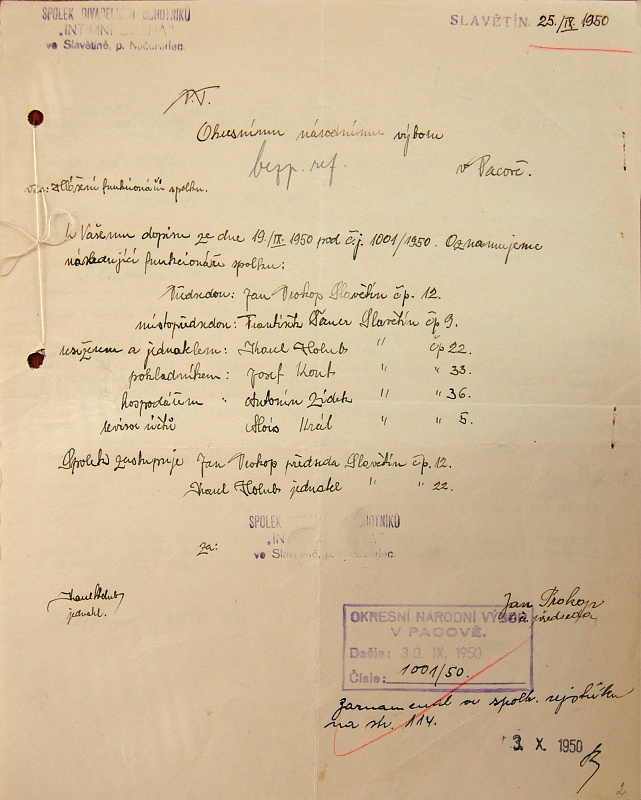 SPOLEK DIVADELNÍCH OCHOTNÍKŮ
„INTIMNÍ SCÉNA"
ve Slavětíně, p. Načeradec.
SLAVĚTÍN 25./IX. 1950
P.T.
Okresnímu národnímu výboru
bezp. ref.
v Pacově.
Věc: Hlášení funkcionářů spolku.
K Vašemu dopisu ze dne 19./IX. 1950 pod č.j. 1001/1950. Oznamujeme
následující funkcionáře spolku:
Předsedou: Jan Prokop Slavětín čp. 12.
místopředsedou: František Slavětín čp 9.
režisérem a jednatelem: Karel Holub " čp 22.
pokladníkem: Josef Kout " " 33.
hospodářem " Antonín Zídek " " 36.
revisor účtů Alois Král " " 5.
Spolek zastupuje Jan Prokop předseda Slavětín čp. 12.
Karel Holub jednatel " " 22.
SPOLEK OCHOTNÍKŮ
„IN
ve Slavětíně, p.
za:
Karel Holub
jednatel.
Jan Prokop
předseda
OKRESNÍ NÁRODNÍ VÝBOR
V PACOVĚ.
Došlo: 30. IX. 1950
Číslo: 1001/50.
zaznamenal ve spolk. rejstříku
na str. 114.
3. X. 1950
2